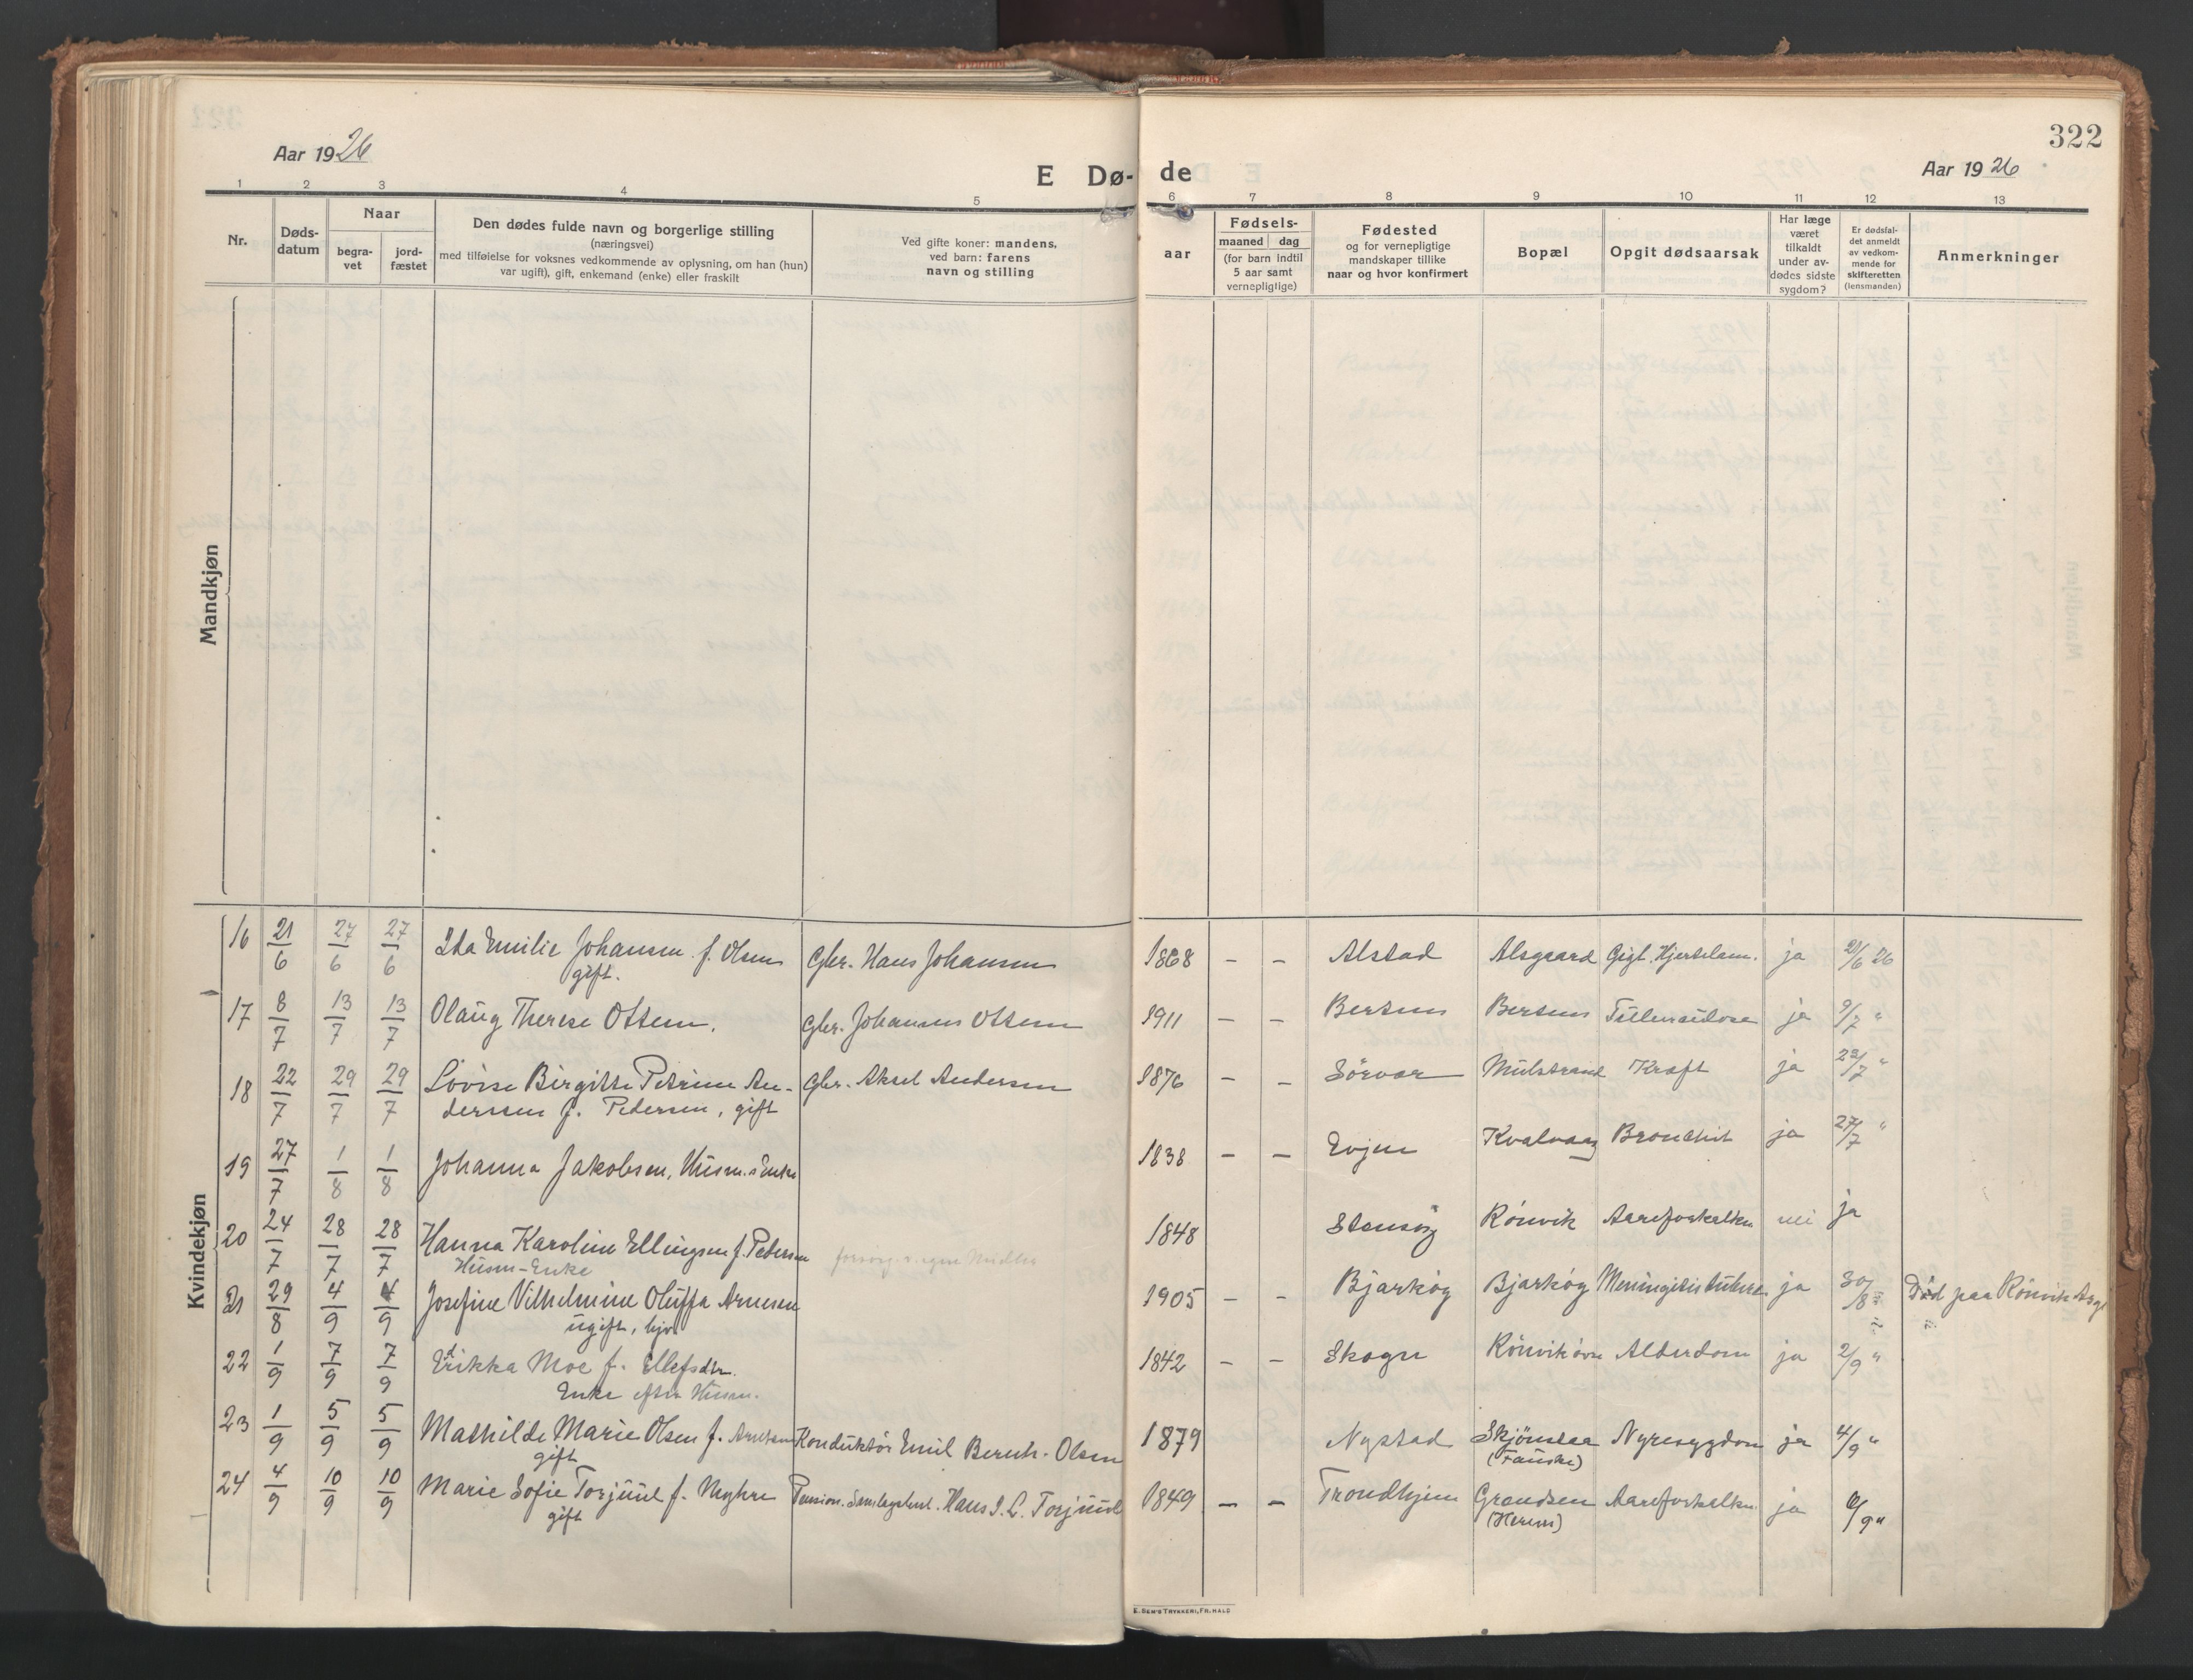 322
Aar 1926
E Dø- de
Aar 1926
1 2 3 4 5 6 7 8 9 10 11 12 13
Nr.
Døds-
datum
Naar
begra-
vet
jord-
fæstet
Den dødes fulde navn og borgerlige stilling
(næringsvei)
med tilføielse for voksnes vedkommende av oplysning, om han (hun)
var ugift), gift, enkemand (enke) eller fraskilt
Ved gifte koner: mandens,
ved barn: farens
navn og stilling
aar
Fødsels-
maaned dag
(for barn indtil
5 aar samt
vernepligtige)
Fødested
og for vernepligtige
mandskaper tillike
naar og hvor konfirmert
Bopæl
Opgit dødsaarsak
Har læge
været
tilkaldt
under av-
dødes sidste
sygdom?
Er dødsfal-
det anmeldt
av vedkom-
mende for
skifteretten
(lensmanden)
Anmerkninger
Mandkjøn
Kvindekjøn
16 21/6 27/6 27/6 Ida Emilie Johansen f. Olsen Gbr. Hans Johansen 1868 – – Alstad Alsgaard Gigt. Hjertelam. ja 21/6 26
gift.
17 8/7 13/7 13/7 Olaug Therese Ottem. Gbr. Johannes Ottem 1911 – – Bertnes Bertnes Tuberculose ja 9/7 "
18 22/7 29/7 29/7 Lovise Birgitte Petrine An- Gbr. Aksel Andersen 1876 – – Sörvær Mulstrand Kræft ja 23/7 "
derssen f. Pedersen, gift
19 27/7 1/8 1/8 Johanna Jakobsen, Husm.s Enke 1838 – – Evjen Kvalvaag Bronchit ja 27/7 "
20 24/7 28/7 28/7 Hanna Karoline Ellingsen f. Pedersen forsørg. v. egne Midler 1848 Stensöy Rönvik Aareforkalkn nei ja
Husm-Enke
21 29/8 4/9 4/9 Josefine Vilhelmine Oluffa Arnesen 1905 – – Bjarköy Bjarköy Meningitis tuberc. ja 30/8 " Död paa Rönvik Asyl
ugift, hjv.
22 1/9 7/9 7/9 Erikka Moe f. Ellefsdtr. 1842 – – Skogn Rönvik övre Alderdom ja 2/9 "
Enke efter Husm.
23 1/9 5/9 5/9 Mathilde Marie Olsen f. Arntsen Konduktör Emil Bernh. Olsen 1879 Nystad Skjönstaa Nyresygdom ja 4/9 "
gift (Fauske)
24 4/9 10/9 10/9 Marie Sofie Torjuul f. Myhre Pension. Hans J. L. Torjuul 1849 – – Trondhjem Grandsen Aareforkalkn. ja 6/9 "
gift
E. SEM'S TRYKKERI, FR.HALD